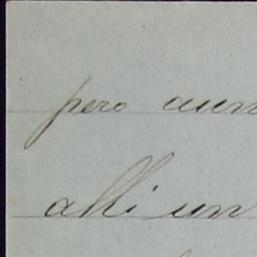 pero aun
alli un